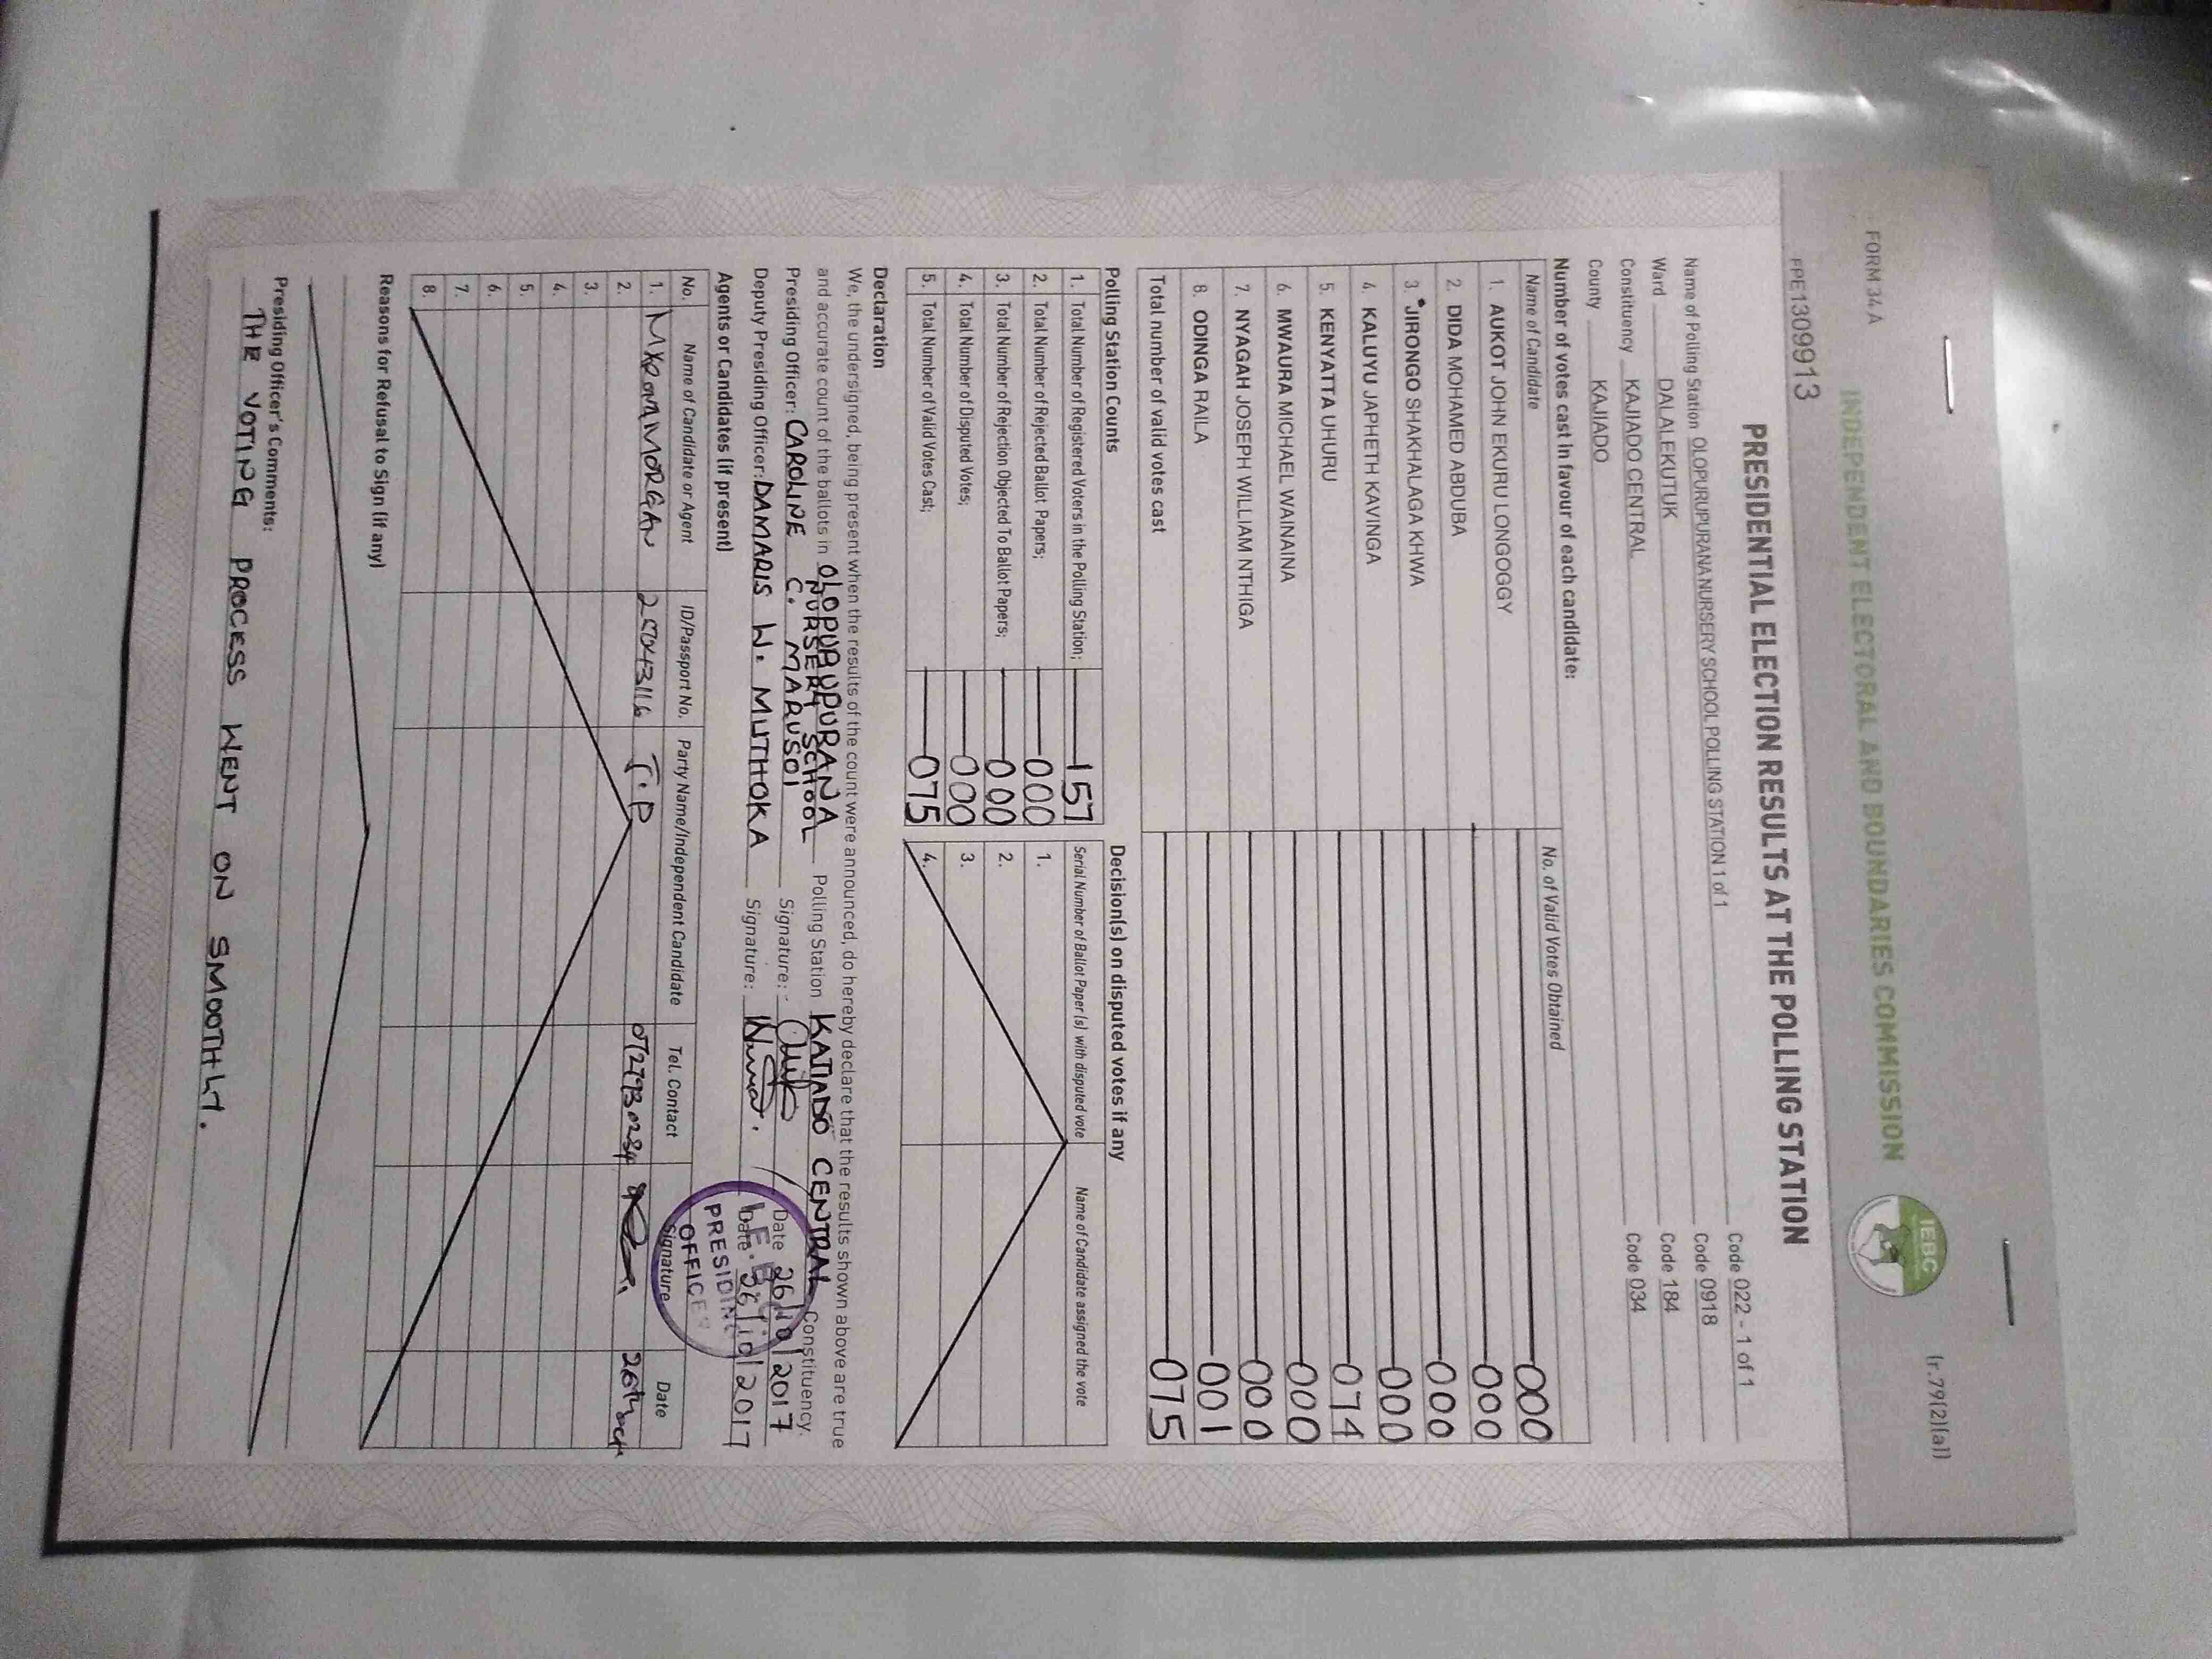 FORM 34A
(r.79(2)(a))
INDEPENDENT ELECTORAL AND BOUNDARIES COMMISSION
IEBC
FPE1309913
PRESIDENTIAL ELECTION RESULTS AT THE POLLING STATION
Name of Polling Station OLOPURUPURANA NURSERY SCHOOL POLLING STATION 1 of 1 Code 022 - 1 of 1
Ward DALALEKUTUK Code 0918
Constituency KAJIADO CENTRAL Code 184
County KAJIADO Code 034
Number of votes cast in favour of each candidate:
Name of Candidate No. of Valid Votes Obtained
1. AUKOT JOHN EKURU LONGOGGY 000
2. DIDA MOHAMED ABDUBA 000
3. JIRONGO SHAKHALAGA KHWA 000
4. KALUYU JAPHETH KAVINGA 000
5. KENYATTA UHURU 074
6. MWAURA MICHAEL WAINAINA 000
7. NYAGAH JOSEPH WILLIAM NTHIGA 000
8. ODINGA RAILA 001
Total number of valid votes cast 075
Polling Station Counts
1. Total Number of Registered Voters in the Polling Station; 157
2. Total Number of Rejected Ballot Papers; 000
3. Total Number of Rejection Objected To Ballot Papers; 000
4. Total Number of Disputed Votes; 000
5. Total Number of Valid Votes Cast; 075
Decision(s) on disputed votes if any
Serial Number of Ballot Paper(s) with disputed vote Name of Candidate assigned the vote
1.
2.
3.
4.
Declaration
We, the undersigned, being present when the results of the count were announced, do hereby declare that the results shown above are true
and accurate count of the ballots in OLOPURUPURANA NURSERY SCHOOL Polling Station KAJIADO CENTRAL Constituency.
Presiding Officer: CAROLINE C. MARUSOI Signature: Date 26/10/2017
Deputy Presiding Officer: DAMARIS W. MUTHOKA Signature: Date 26/10/2017
PRESIDING
OFFICER
Agents or Candidates (if present)
No. Name of Candidate or Agent ID/Passport No. Party Name/Independent Candidate Tel. Contact Signature Date
1. MORGAN
2.
3.
4.
5.
6.
7.
8.
Reasons for Refusal to Sign (if any)
Presiding Officer's Comments:
THE VOTING PROCESS WENT ON SMOOTHLY.